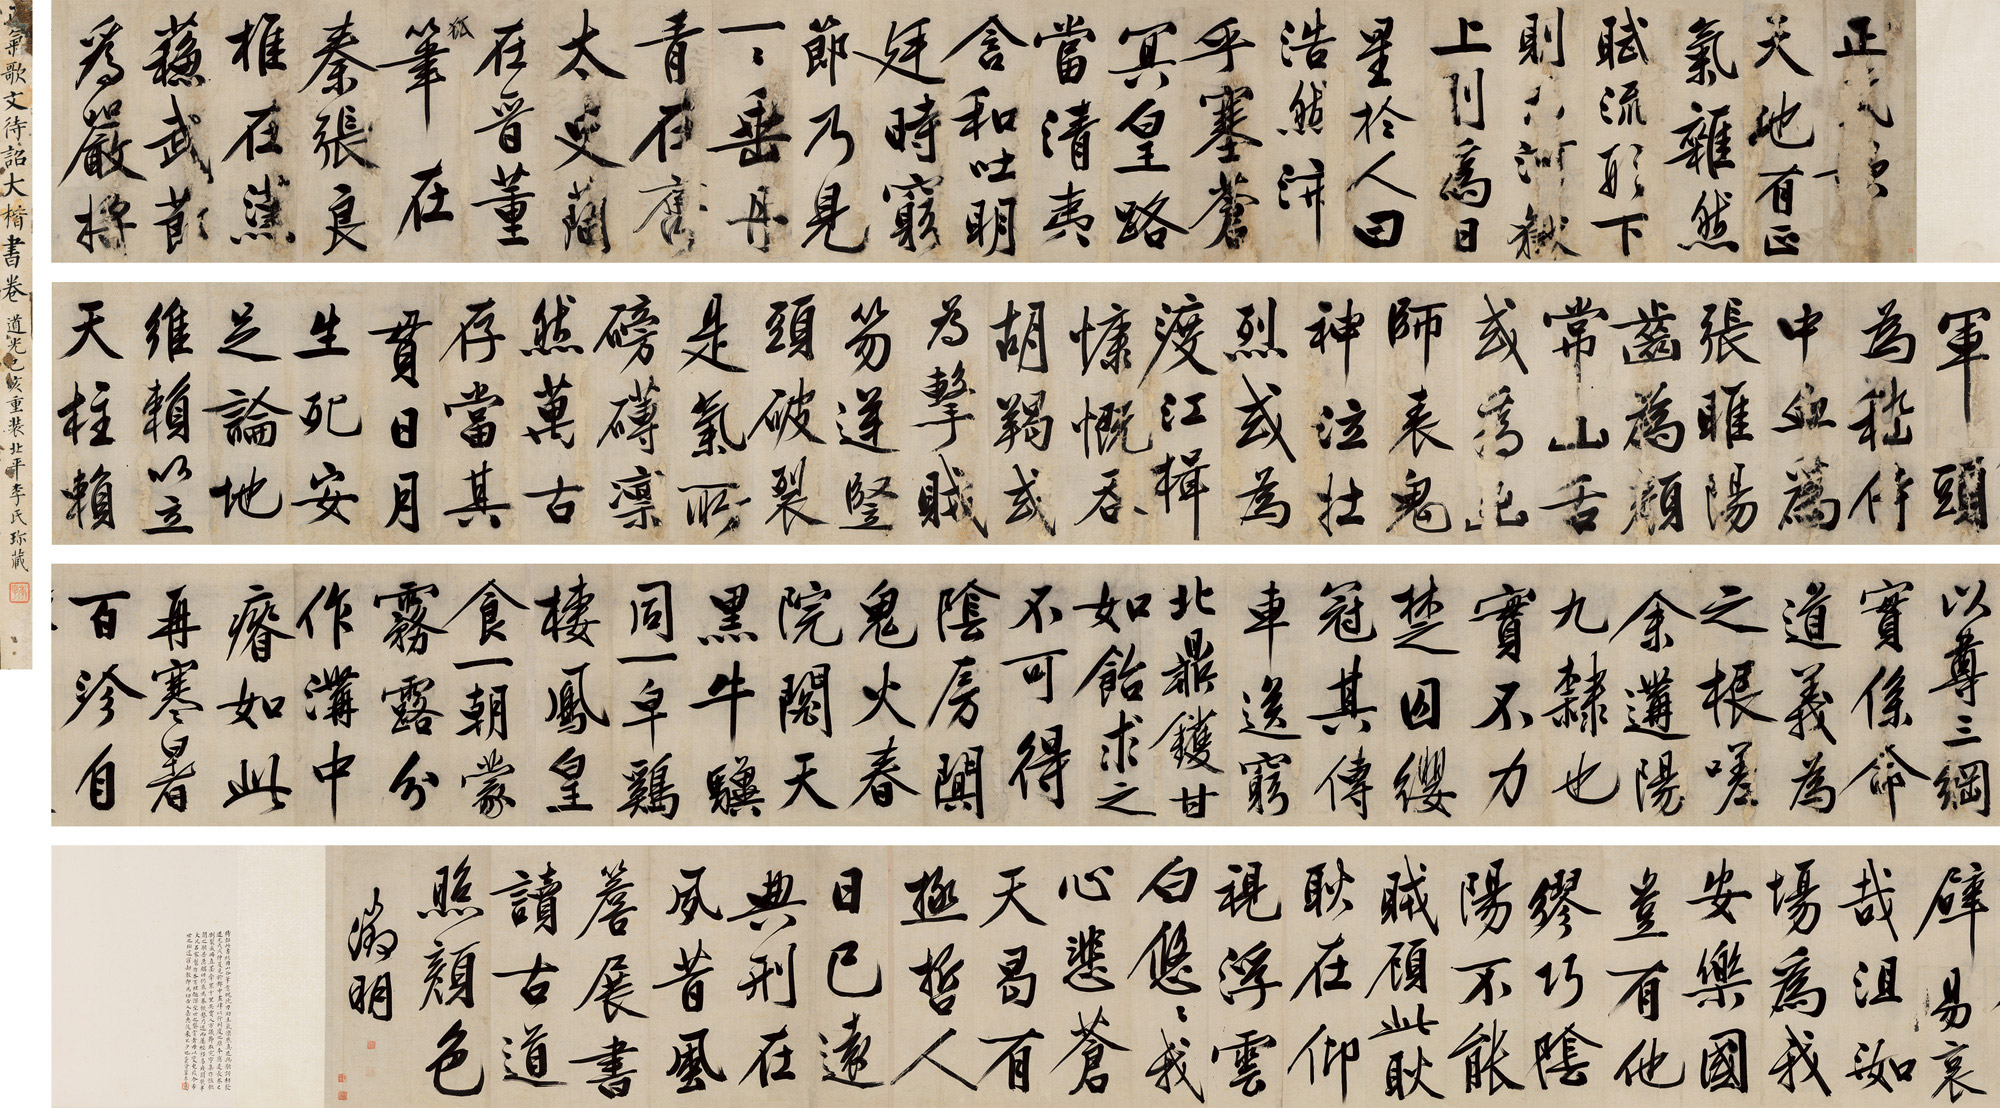 正氣歌
天地有正
氣雜然
賦流形下
則為河嶽
上則為日
星於人曰
浩然沛
乎塞蒼
冥皇路
當清夷
含和吐明
廷時窮
節乃見
一〻垂丹
青在齊
太史簡
在晉董
狐筆在
秦張良
椎在漢
蘇武節
為嚴將
軍頭
為嵇侍
中血為
張睢陽
齒為顏
常山舌
或為出
師表鬼
神泣壯
烈或為
渡江楫
慷慨吞
胡羯或
為擊賊
笏逆豎
頭破裂
是氣所
磅礴凜
然萬古
存當其
貫日月
生死安
足論地
維賴以立
天柱賴
以尊三綱
實係命
道義為
之根嗟
余遘陽
九隸也
實不力
楚囚纓
冠其傳
車送窮
北鼎鑊甘
如飴求之
不可得
陰房闃
鬼火春
院閟天
黑牛驥
同一皁雞
棲鳳皇
食一朝蒙
霧露分
作溝中
瘠如此
再寒暑
百沴自
辟易哀
哉沮洳
場為我
安樂國
豈有他
繆巧陰
陽不能
賊顧此耿
耿在仰
視浮雲
白悠〻我
心悲蒼
天曷有
極哲人
日已遠
典刑在
夙昔風
簷展書
讀古道
照顏色
徵明
正氣歌文待詔大楷書卷 道光己亥重裝北平李氏珍藏